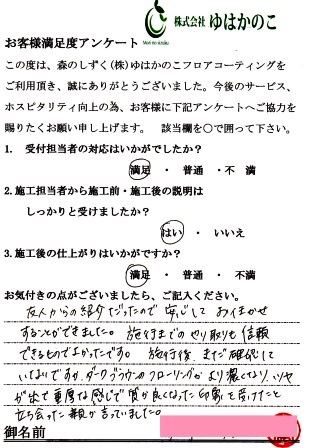 株式会社 ゆはかのこ
Mori no sizuku
お客様満足度アンケート
この度は、森のしずく(株)ゆはかのこフロアコーティングを
ご利用頂き、誠にありがとうございました。今後のサービス、
ホスピタリティ向上の為、お客様に下記アンケートへご協力を
賜りたくお願い申し上げます。 該当欄を○で囲って下さい。
1. 受付担当者の対応はいかがでしたか？
満足 ・ 普通 ・不 満
2. 施工担当者から施工前・施工後の説明は
しっかりと受けましたか？
はい ・ いいえ
3. 施工後の仕上がりはいかがですか？
満足 ・ 普通 ・ 不満
お気付きの点がございましたら、ご記入ください。
友人からの紹介だったので安心しておまかせ
することができました。施行までのやり取りも信頼
できるものでよかったです。 施行後、まだ確認して
いないですが、ダークブラウンのフローリングが より濃くなり、ツヤ
が出て重厚な感じで質が良くなった印象を受けたと
立ち会った親が言っていました。
御名前